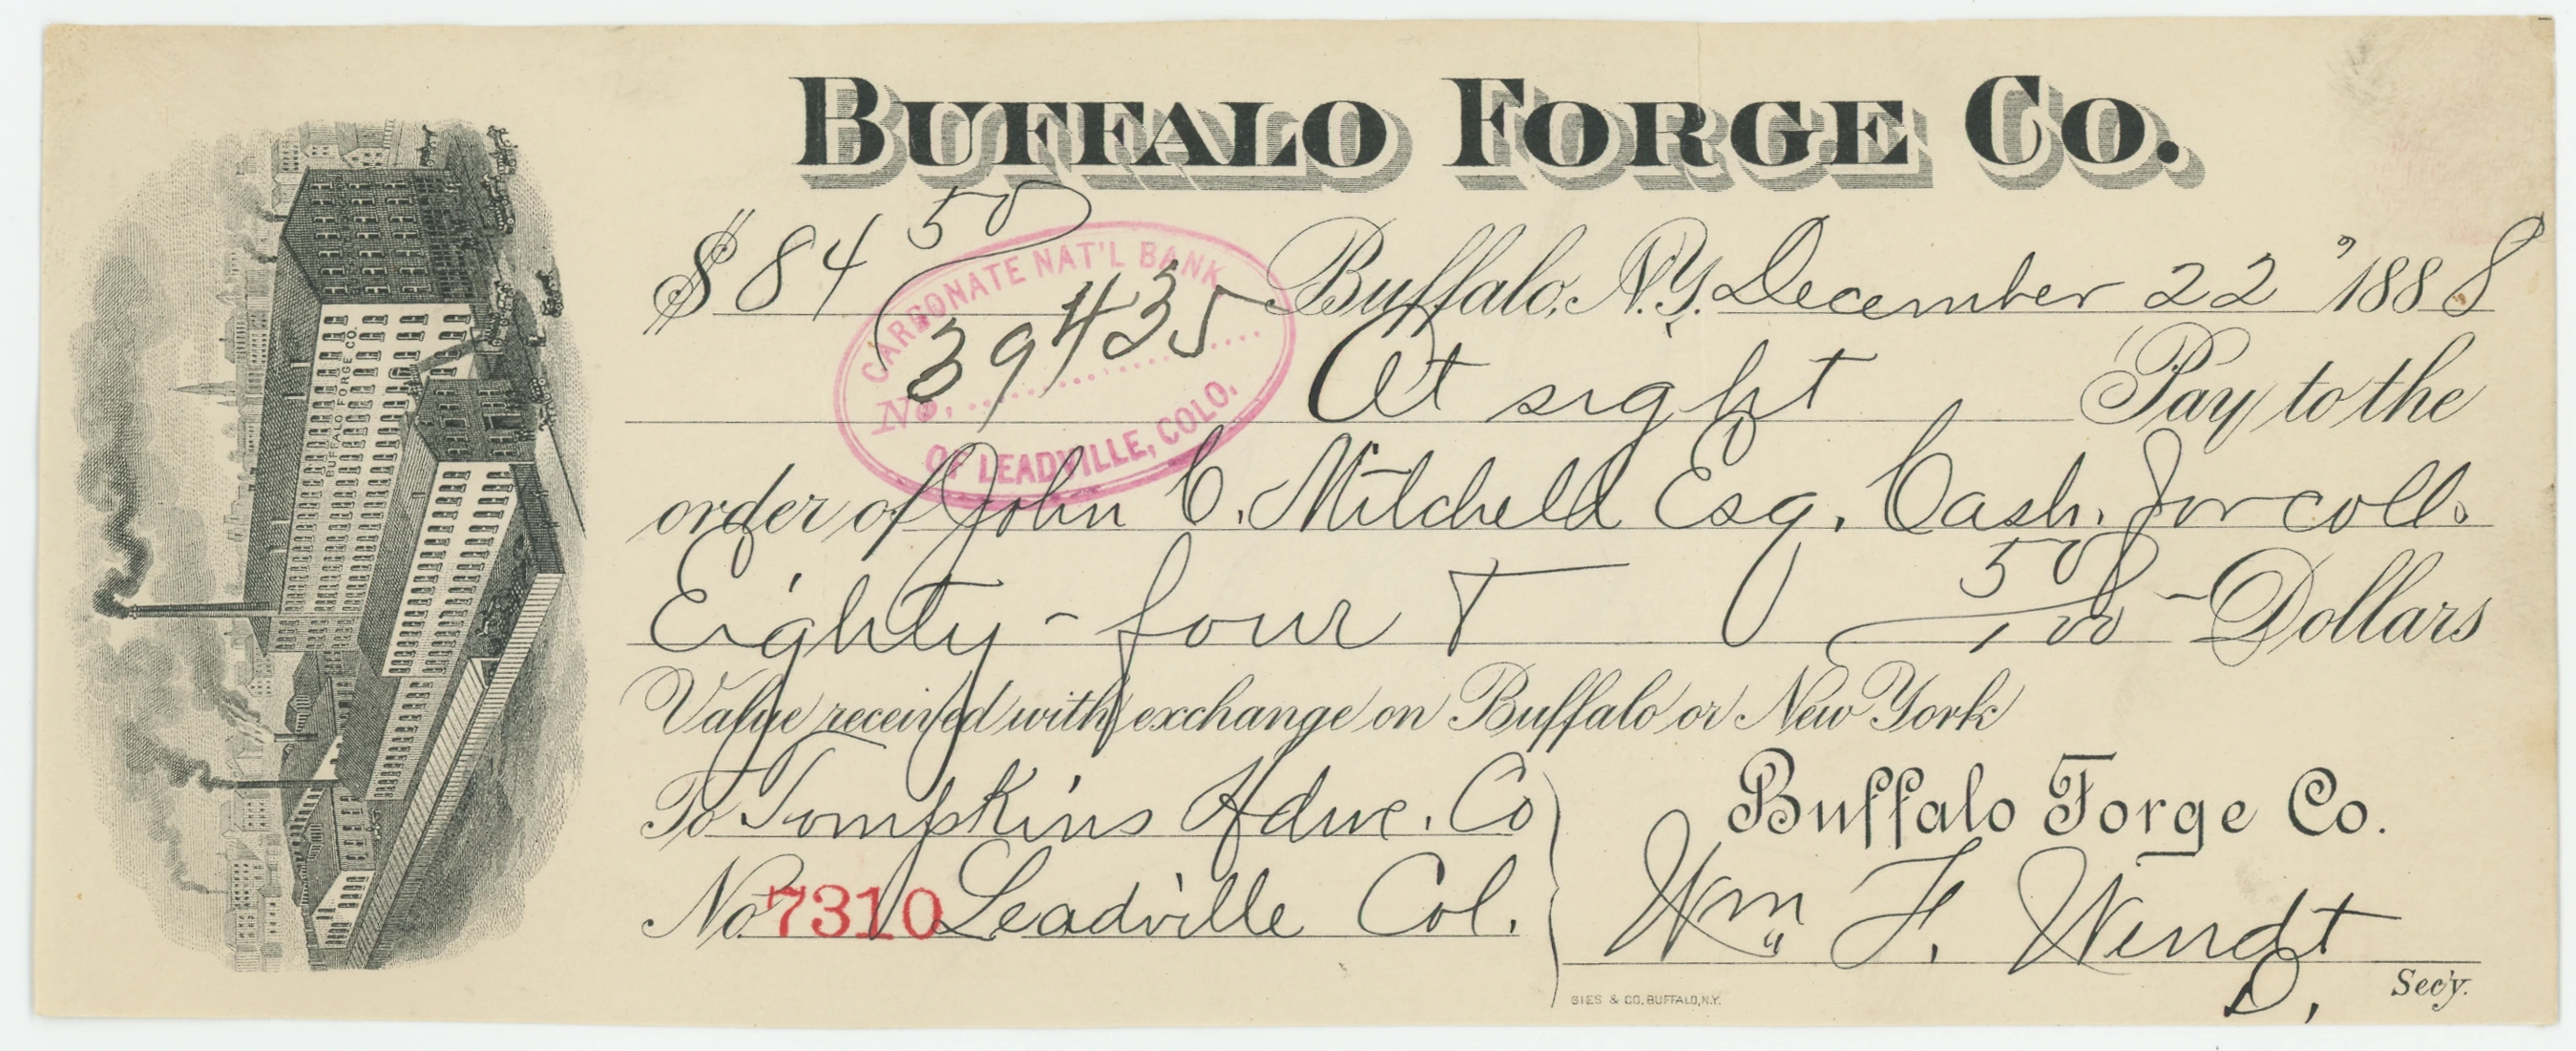 BUFFALO FORGE CO.
$ 84 50 Buffalo, N.Y. December 22" 1888
CARBONATE NAT'L BANK
No. 39435
OF LEADVILLE, COLO.
At sight Pay to the
order of John C. Mitchell Esq. Cash. for coll.
Eighty-four 50/100 Dollars
Value received with exchange on Buffalo or New York
To Tompkins Hdwe. Co
No 7310 Leadville Col.
Buffalo Forge Co.
Wm. F. Wendt
D. Sec'y.
GIES & CO. BUFFALO, N.Y.
BUFFALO FORGE CO.
BUFFALO FORGE CO.